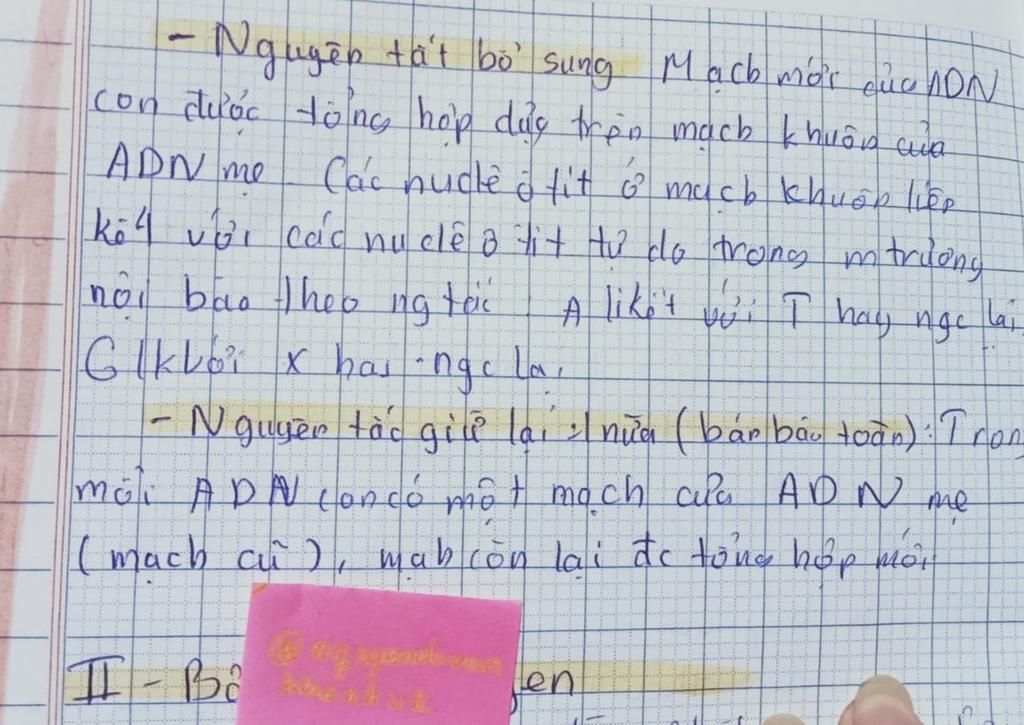 - Nguyên tắt bổ sung Mạch mới của ADN
con được tổng hợp dựa trên mạch khuôn của
ADN mẹ Các nuclêôtit ở mạch khuôn liên
kết với các nuclêôtit tự do trong mtrường
nội bào theo ngtắc A likết với T hay ngc lại
G lkvới X hay ngc lại
- Nguyên tắc giữ lại 1 nửa (bán bảo toàn): Tron
mỗi ADN con có một mạch của ADN mẹ
(mạch cũ), mạh còn lại đc tổng hợp mới
II - Bộ
en